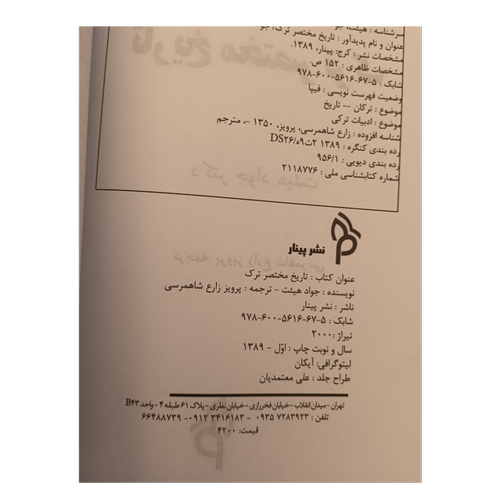 سرشناسه : هیئت، جو
عنوان و نام پدیدآور : تاریخ مختصر ترک/ جو
مشخصات نشر : کرج: پینار، ۱۳۸۹.
مشخصات ظاهری : ۱۵۲ ص.
شابک : ۵-۶۷-۵۶۱۶-۶۰۰-۹۷۸
وضعیت فهرست نویسی : فیپا
موضوع : ترکان -- تاریخ
موضوع : ادبیات ترکی
شناسه افزوده : زارع شاهمرسی، پرویز، ۱۳۵۰ -، مترجم
رده بندی کنگره : ۱۳۸۹ ۲ت۹ه/DS۲۶
رده بندی دیویی : ۹۵۶/۱
شماره کتابشناسی ملی : ۲۱۱۸۷۷۶
نشر پینار
عنوان کتاب : تاریخ مختصر ترک
نویسنده : جواد هیئت - ترجمه : پرویز زارع شاهمرسی
ناشر : نشر پینار
شابک : ۵-۶۷-۵۶۱۶-۶۰۰-۹۷۸
تیراژ : ۲۰۰۰
سال و نوبت چاپ : اوّل - ۱۳۸۹
لیتوگرافی: آیکان
طراح جلد : علی معتمدیان
تهران - میدان انقلاب - خیابان فخررازی - خیابان نظری - پلاک ۶۱ طبقه ۴ - واحد B۴۳
تلفن : ۰۹۳۵۷۲۸۳۹۲۳ - ۰۹۱۲۳۴۱۶۱۸۳ - ۶۶۴۸۸۷۳۹
قیمت: ۴۲۰۰